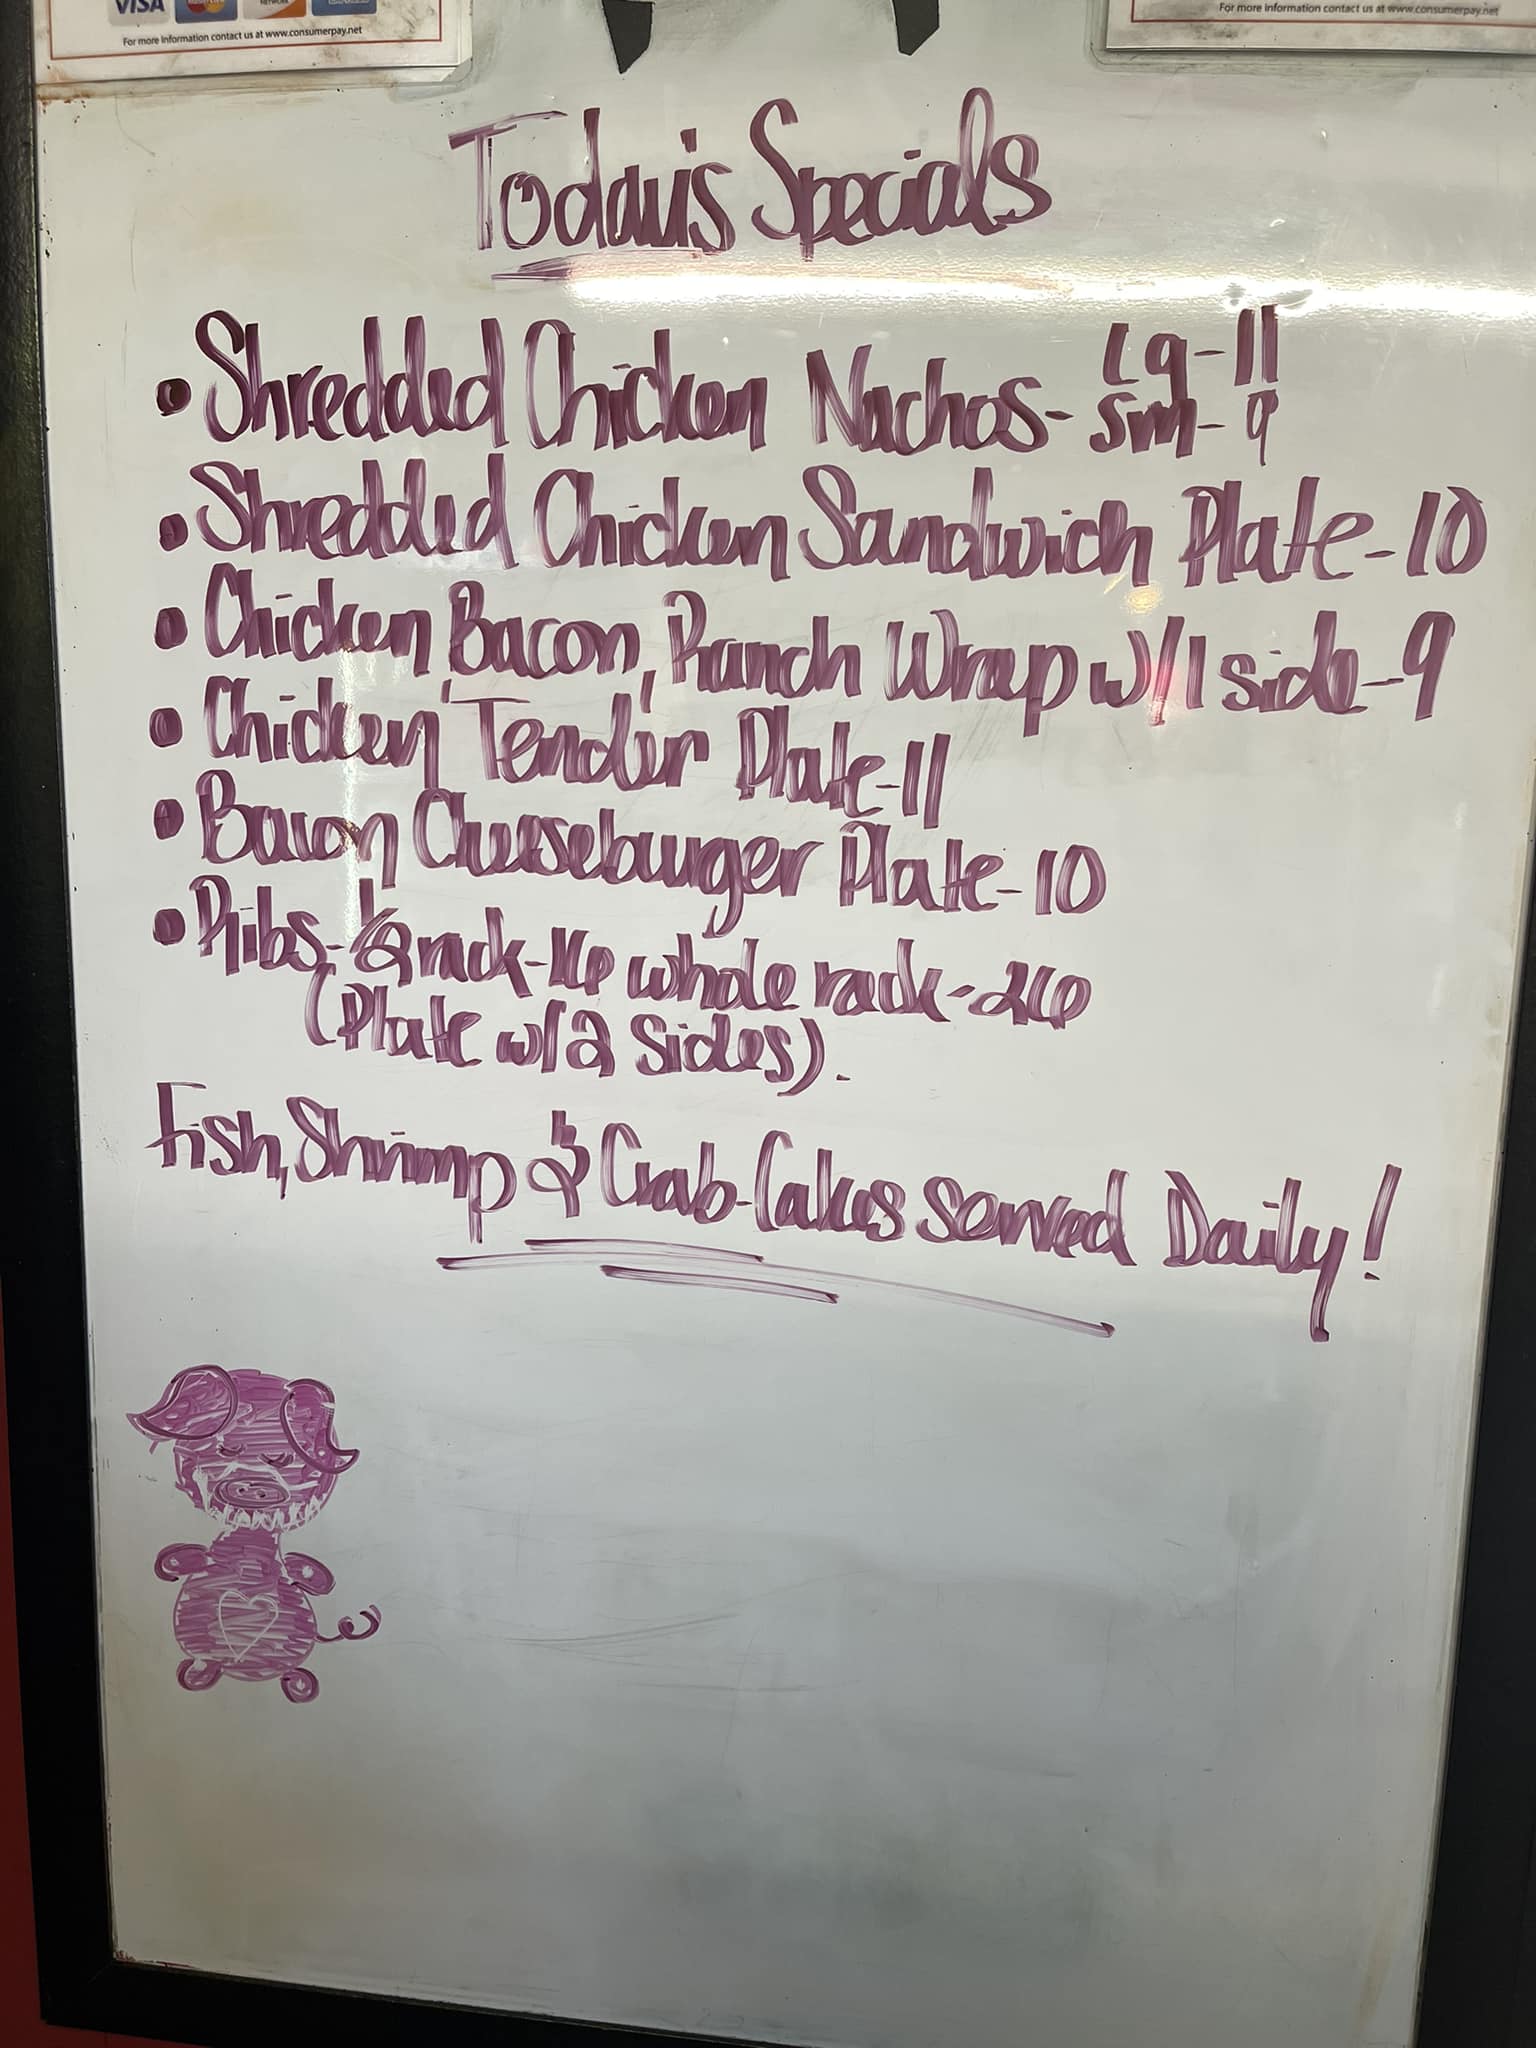 VISA
For more information contact us at www.consumerpay.net
For more information contact us at www.consumerpay.net
Today's Specials
• Shredded Chicken Nachos- Lg-11
Sm-9
• Shredded Chicken Sandwich Plate-10
• Chicken, Bacon, Ranch Wrap w/1 side-9
• Chicken Tender Plate-11
• Bacon Cheeseburger Plate-10
• Ribs-½ rack-16 whole rack-26
(Plate w/2 sides).
Fish, Shrimp & Crab-Cakes served Daily!